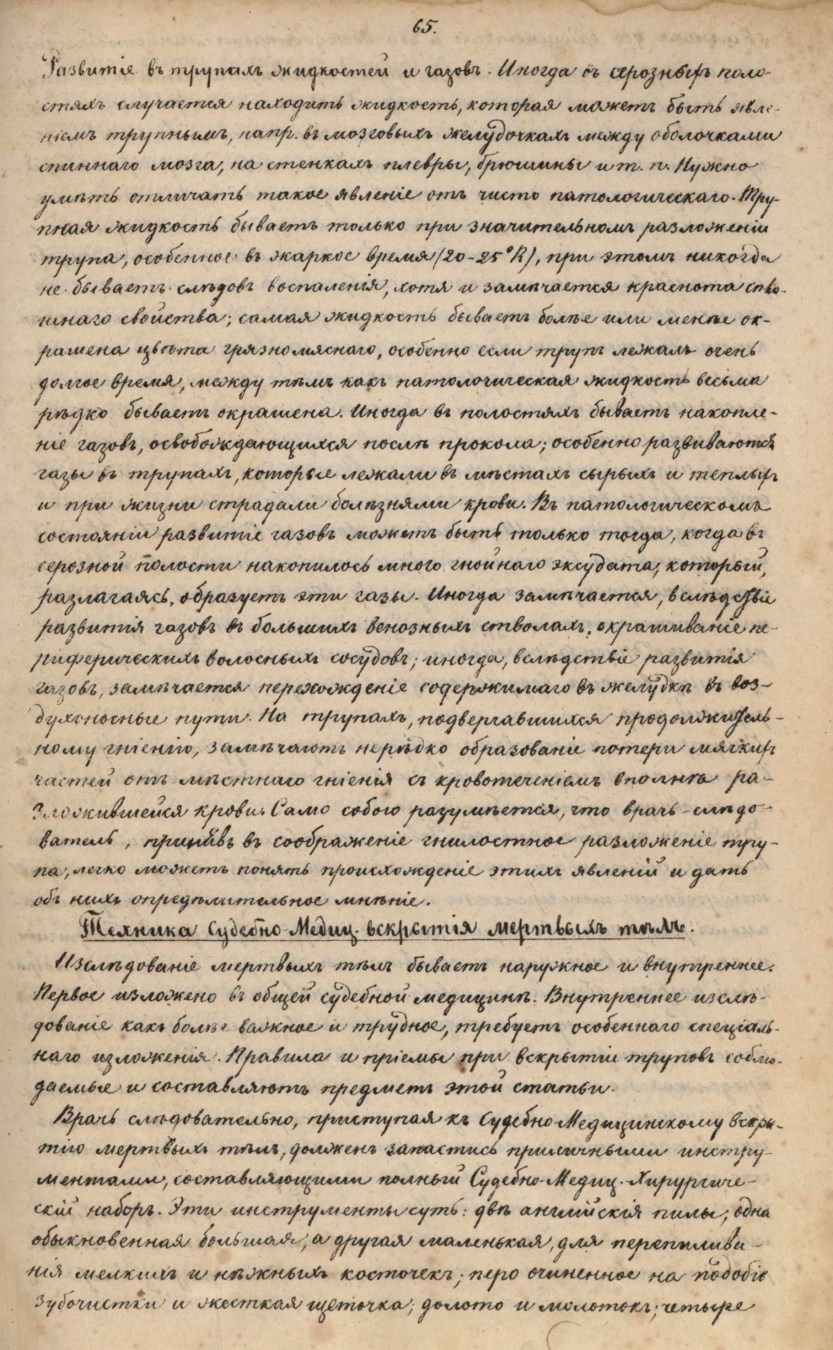 65.
Развитіе въ трупахъ жидкостей и газовъ. Иногда въ серозныхъ поло-
стяхъ случается находить жидкость, которая можетъ быть явле-
ніемъ трупнымъ, напр. въ мозговыхъ желудочкахъ между оболочками
спиннаго мозга, на стенкахъ плевры, брюшины и т. п. Нужно
умѣть отличать такое явленіе отъ чисто патологическаго. Тру-
пная жидкость бываетъ только при значительномъ разложеніи
трупа, особенное въ жаркое время (20-25°R), при этомъ никогда
не бываетъ слѣдовъ воспаленія, хотя и замѣчается краснота
шнаго свойства; самая жидкость бываетъ болѣе или менѣе ок-
рашена цвѣта грязномяснаго, особенно если трупъ лежалъ очень
долгое время, между тѣмъ какъ патологическая жидкость весьма
рѣдко бываетъ окрашена. Иногда въ полостяхъ бываетъ накопле-
ніе газовъ, освобождающихся послѣ прокола; особенно развиваются
газы въ трупахъ, которые лежали въ мѣстахъ сырыхъ и теплыхъ
и при жизни страдали болѣзнями крови. Въ патологическомъ
состояніи развитіе газовъ можетъ быть только тогда, когда въ
серозной полости накопилось много гнойнаго эксудата, который,
разлагаясь, образуетъ эти газы. Иногда замѣчается, вслѣдствіе
развитія газовъ въ большихъ венозныхъ стволахъ, окрашиваніе пе-
риферическихъ волосныхъ сосудовъ; иногда, вслѣдствіе развитія
газовъ, замѣчается перехожденіе содержимаго въ желудкѣ въ воз-
духоносные пути. На трупахъ, подвергавшихся продолжитель-
ному гніенію, замѣчаютъ нерѣдко образованіе потери мягкихъ
частей отъ мѣстнаго гніенія съ кровотеченіемъ вполнѣ ра-
зложившейся крови. Само собою разумѣется, что врачь-слѣдо-
ватель, принявъ въ соображеніе гнилостное разложеніе тру-
па, легко можетъ понять происхожденіе этихъ явленій и дать
объ нихъ опредѣлительное мнѣніе.
Техника Судебно-Медиц. вскрытія мертвыхъ тѣлъ.
Изслѣдованіе мертвыхъ тѣлъ бываетъ наружное и внутреннее.
Первое изложено въ общей судебной медицинѣ. Внутреннее изслѣ-
дованіе какъ болѣе важное и трудное, требуетъ особеннаго спеціаль-
наго изложенія. Правила и пріемы при вскрытіи труповъ соблю-
даемые и составляютъ предметъ этой статьи.
Врачь слѣдовательно, приступая къ Судебно-Медицинскому вскры-
тію мертвыхъ тѣлъ, долженъ запастись приличными инстру-
ментами, составляющими полный Судебно-Медиц. Хирургиче-
скій наборъ. Эти инструменты суть: двѣ англійскія пилы; одна
обыкновенная большая, а другая маленькая, для перепилива-
нія мелкихъ и нѣжныхъ косточекъ; перо очиненное на подобіе
зубочистки и жесткая щеточка; долото и молотокъ; четыре